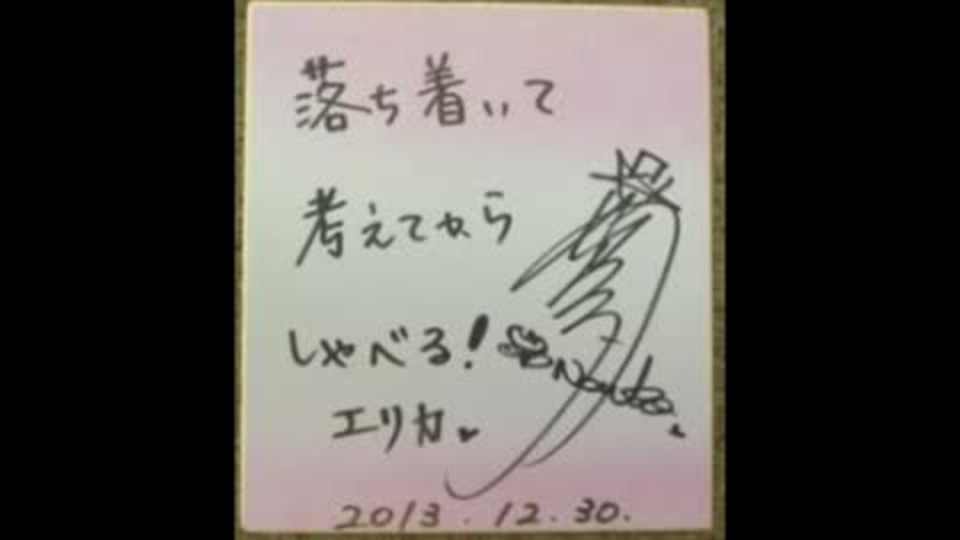 落ち着いて
考えてから
しゃべる!
エリカ♥
2013.12.30.